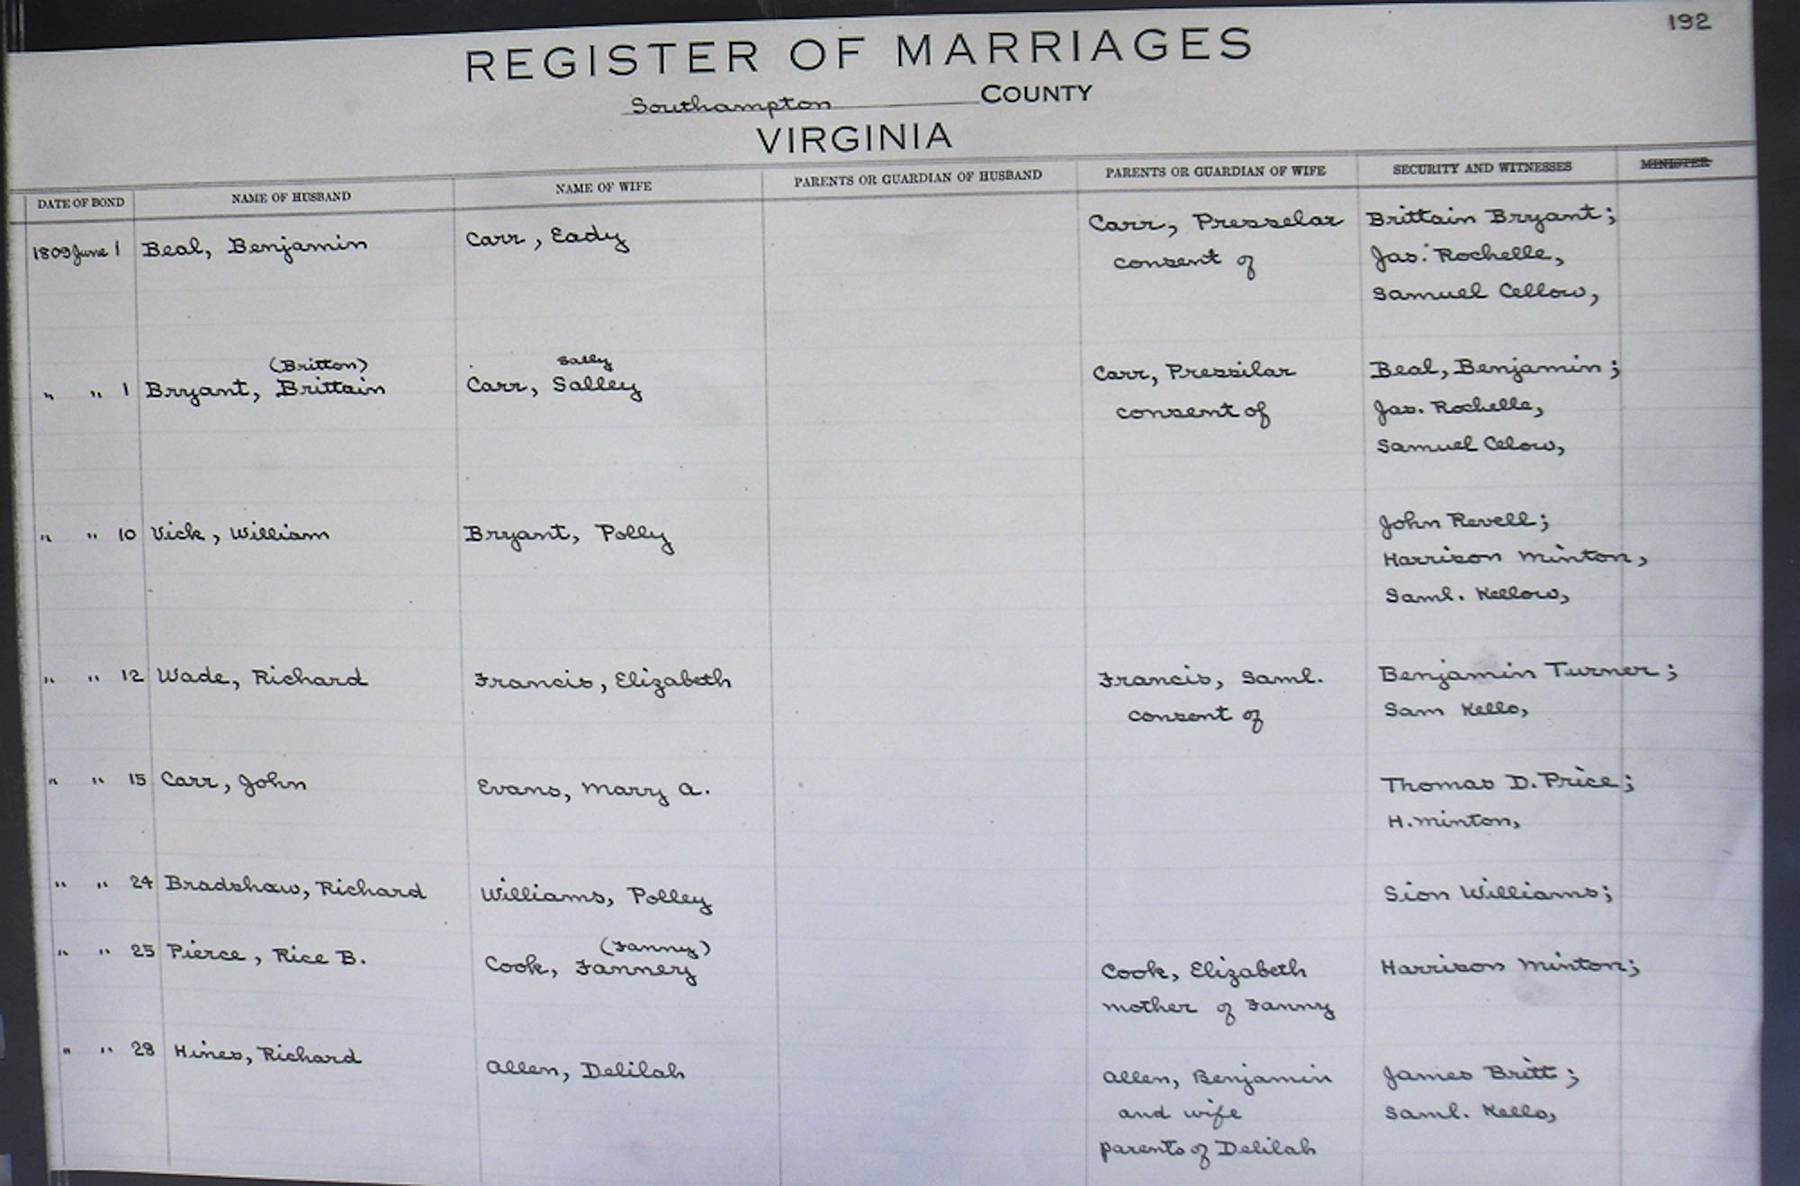 192
REGISTER OF MARRIAGES
Southampton COUNTY
VIRGINIA
DATE OF BOND NAME OF HUSBAND NAME OF WIFE PARENTS OR GUARDIAN OF HUSBAND PARENTS OR GUARDIAN OF WIFE SECURITY AND WITNESSES MINISTER
1809 June 1 Beal, Benjamin Carr, Eady Carr, Presselar Brittain Bryant;
consent of Jas. Rochelle,
Samuel Cellow,
(Britton) Sally
" " 1 Bryant, Brittain Carr, Salley Carr, Pressilar Beal, Benjamin;
consent of Jas. Rochelle,
Samuel Celow,
" " 10 Vick, William Bryant, Polly John Revell;
Harrison Minton,
Saml. Kellow,
" " 12 Wade, Richard Francis, Elizabeth Francis, Saml. Benjamin Turner;
consent of Sam Kello,
" " 15 Carr, John Evans, Mary A. Thomas D. Price;
H. Minton,
" " 24 Bradshaw, Richard Williams, Polley Sion Williams;
(Fanny)
" " 25 Pierce, Rice B. Cook, Fanney Cook, Elizabeth Harrison Minton;
mother of Fanny
" " 28 Hines, Richard Allen, Delilah Allen, Benjamin James Britt;
and wife Saml. Kello,
parents of Delilah